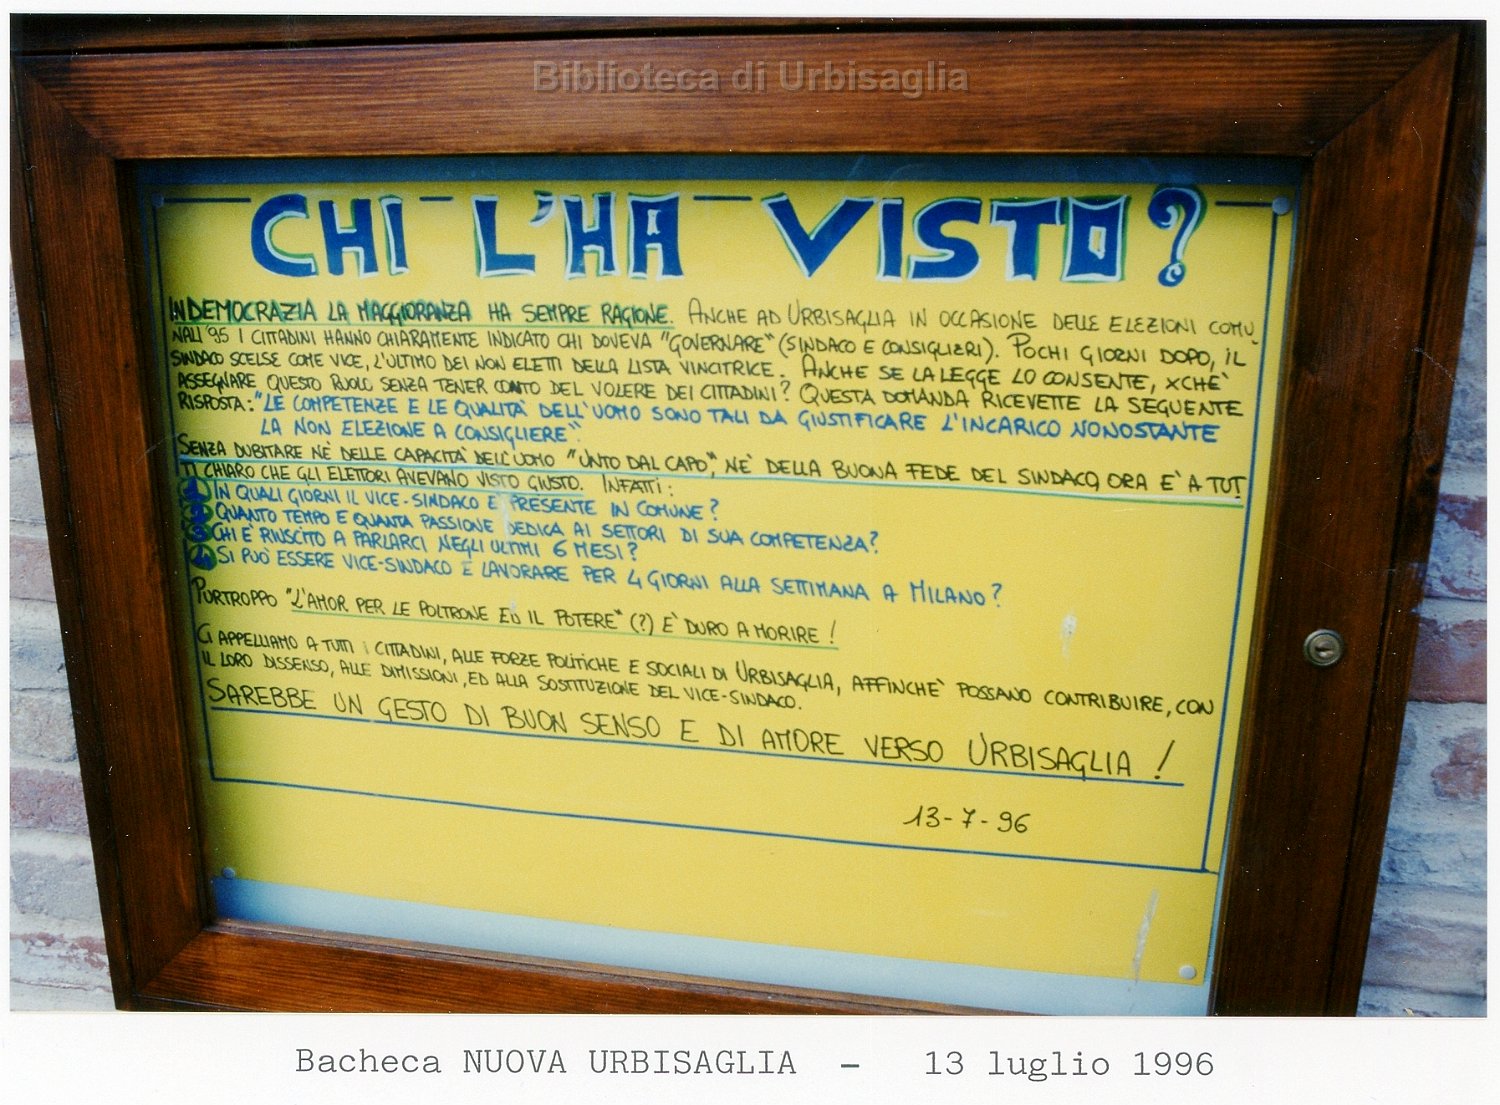 Biblioteca di Urbisaglia
CHI L'HA VISTO?
IN DEMOCRAZIA LA MAGGIORANZA HA SEMPRE RAGIONE. ANCHE AD URBISAGLIA IN OCCASIONE DELLE ELEZIONI COMU
NALI '95 I CITTADINI HANNO CHIARAMENTE INDICATO CHI DOVEVA "GOVERNARE" (SINDACO E CONSIGLIERI). POCHI GIORNI DOPO, IL
SINDACO SCELSE COME VICE, L'ULTIMO DEI NON ELETTI DELLA LISTA VINCITRICE. ANCHE SE LA LEGGE LO CONSENTE, XCHE'
ASSEGNARE QUESTO RUOLO SENZA TENER CONTO DEL VOLERE DEI CITTADINI? QUESTA DOMANDA RICEVETTE LA SEGUENTE
RISPOSTA: "LE COMPETENZE E LE QUALITA' DELL'UOMO SONO TALI DA GIUSTIFICARE L'INCARICO NONOSTANTE
LA NON ELEZIONE A CONSIGLIERE".
SENZA DUBITARE NE' DELLE CAPACITA' DELL'UOMO "UNTO DAL CAPO", NE' DELLA BUONA FEDE DEL SINDACO, ORA E' A TUT
TI CHIARO CHE GLI ELETTORI AVEVANO VISTO GIUSTO. INFATTI:
1 IN QUALI GIORNI IL VICE-SINDACO E' PRESENTE IN COMUNE?
2 QUANTO TEMPO E QUANTA PASSIONE DEDICA AI SETTORI DI SUA COMPETENZA?
3 CHI E' RIUSCITO A PARLARCI NEGLI ULTIMI 6 MESI?
4 SI PUO' ESSERE VICE-SINDACO E LAVORARE PER 4 GIORNI ALLA SETTIMANA A MILANO?
PURTROPPO "L'AMOR PER LE POLTRONE ED IL POTERE" (?) E' DURO A MORIRE!
CI APPELLIAMO A TUTTI I CITTADINI, ALLE FORZE POLITICHE E SOCIALI DI URBISAGLIA, AFFINCHE' POSSANO CONTRIBUIRE, CON
IL LORO DISSENSO, ALLE DIMISSIONI, ED ALLA SOSTITUZIONE DEL VICE-SINDACO.
SAREBBE UN GESTO DI BUON SENSO E DI AMORE VERSO URBISAGLIA!
13-7-96
Bacheca NUOVA URBISAGLIA - 13 luglio 1996